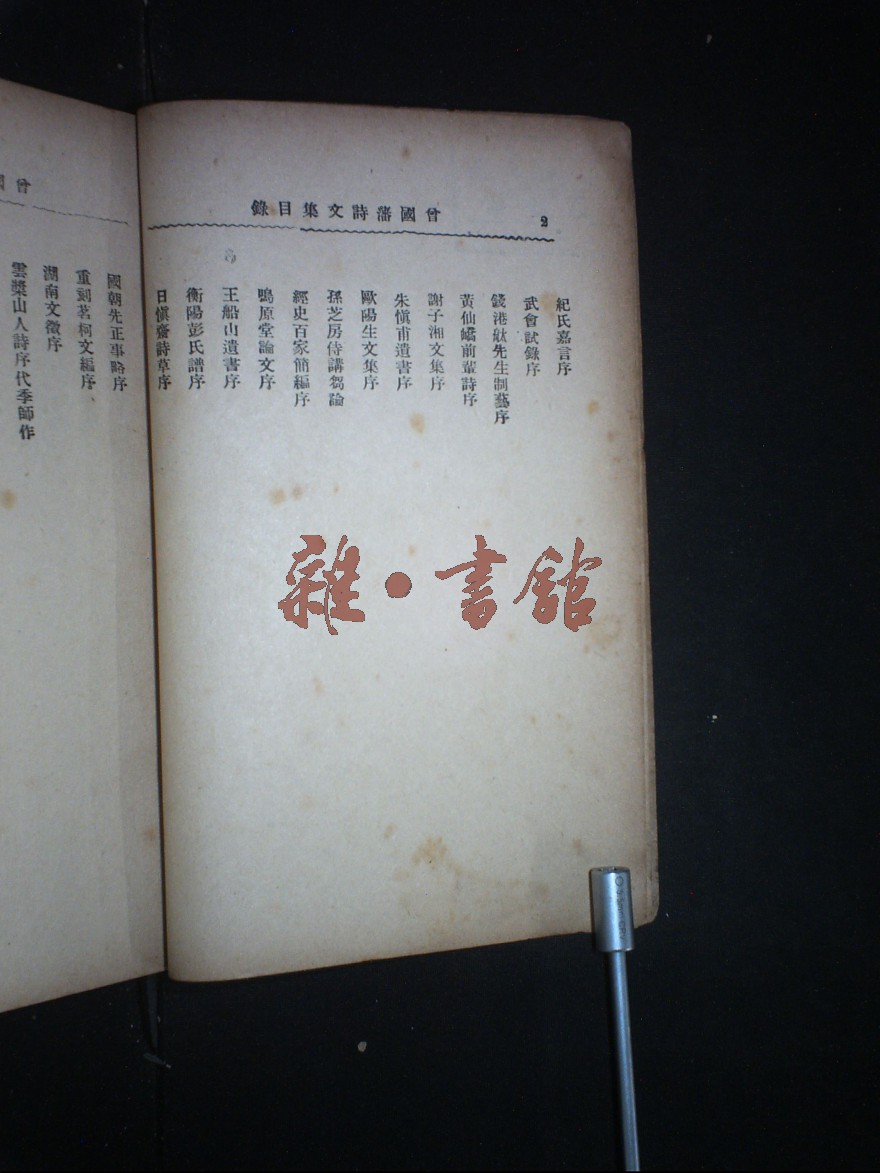 曾國藩詩文集目錄
2
紀氏嘉言序
武會試錄序
錢港舷先生制藝序
黃仙嶠前輩詩序
謝子湘文集序
朱愼甫遺書序
歐陽生文集序
孫芝房侍講芻論
經史百家簡編序
鳴原堂論文序
王船山遺書序
衡陽彭氏譜序
日愼齋詩草序
曾
國朝先正事略序
重刻茗柯文編序
湖南文徵序
雲槳山人詩序代季師作
雜·書館